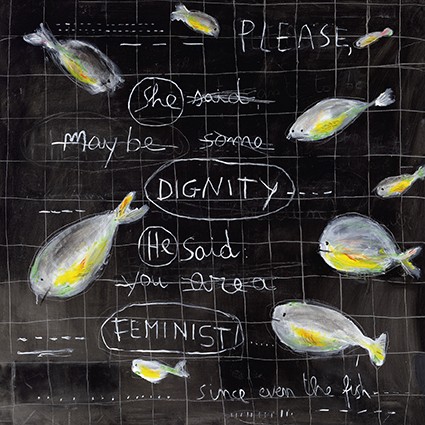 PLEASE,
She said,
maybe some
DIGNITY
He said:
you are a
FEMINIST!
since even the fish